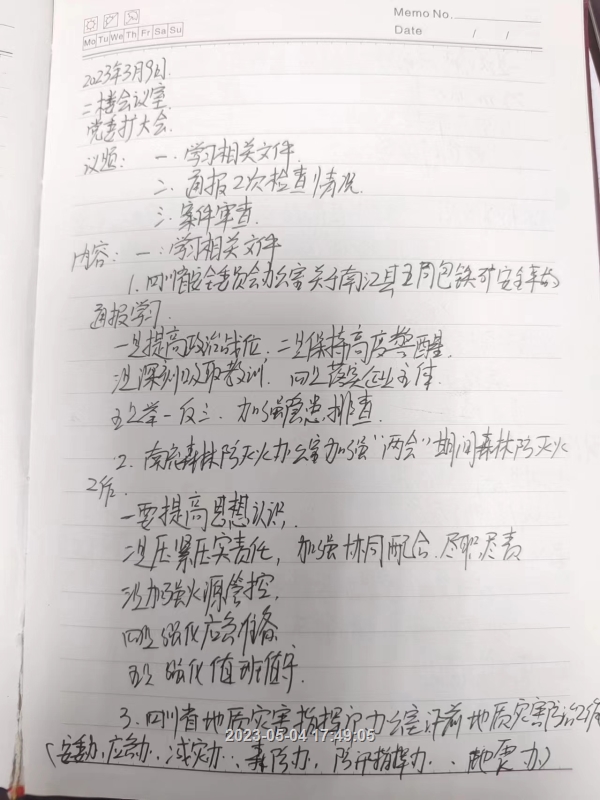 Memo No.
Mo Tu We Th Fr Sa Su
Date / /
2023年3月9日.
二楼会议室.
党委扩大会.
议题: 一. 学习相关文件.
二. 通报2次检查情况.
三. 案件审查.
内容: 一. 学习相关文件
1. 四川省安全委员会办公室关于南江县五同包铁矿安全事故
通报学习.
一是提高政治战位. 二是保持高度警醒.
三是深刻吸取教训. 四是落实企业主体.
五是举一反三. 加强隐患排查.
2. 森林防灭火办公室加强“两会”期间森林防灭火
工作.
一要提高思想认识.
二是压紧压实责任, 加强协同配合. 尽职尽责
三是加强火源管控.
四是强化应急准备.
五是强化值班值守.
3. 四川省地质灾害指挥部办公室汛前地质灾害防治工作
2023-05-04 17:49:05
(安委办. 应急办. 减灾办. 森防办, 防汛指挥办. 地震办)